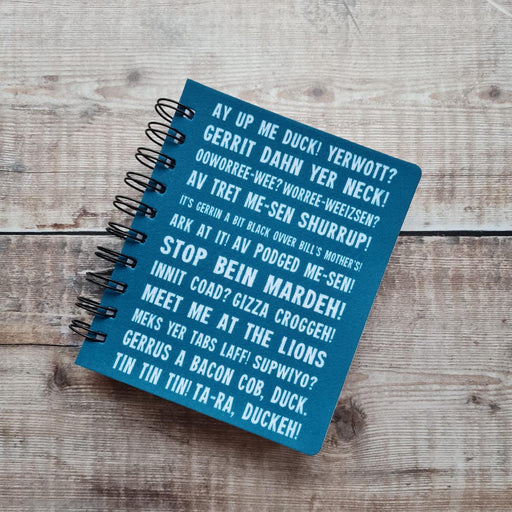 AY UP ME DUCK! YERWOTT?
GERRIT DAHN YER NECK!
OOWORREE-WEE? WORREE-WEEIZSEN?
AV TRET ME-SEN SHURRUP!
IT'S GERRIN A BIT BLACK OVVER BILL'S MOTHER'S!
ARK AT IT! AV PODGED ME-SEN!
STOP BEIN MARDEH!
INNIT COAD? GIZZA CROGGEH!
MEET ME AT THE LIONS
MEKS YER TABS LAFF! SUPWIYO?
GERRUS A BACON COB, DUCK.
TIN TIN TIN! TA-RA, DUCKEH!